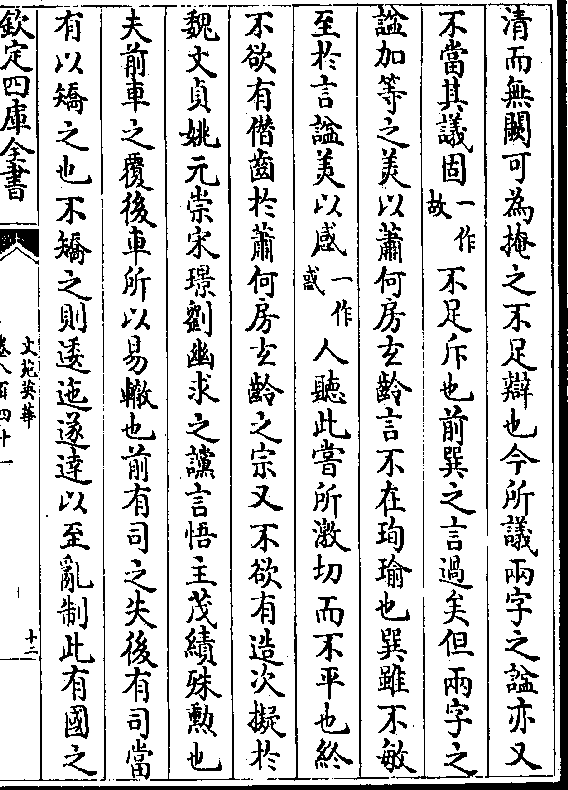 清而無闕可為掩之不足辯也今所議兩字之諡亦又
不當其議固一作故不足斥也前巽之言過矣但兩字之
諡加等之美以蕭何房玄齡言不在珣瑜也巽雖不敏
至於言諡美以感一作惑人聽此嘗所激切而不平也終
不欲有僭齒於蕭何房玄齡之宗又不欲有造次擬於
魏文貞姚元崇宋璟劉幽求之讜言悟主茂績殊勲也
夫前車之覆後車所以易轍也前有司之失後有司當
有以矯之也不矯之則逶迤遂達以至亂制此有國之
欽定四庫全書
文苑英華
卷八百四十一
十二